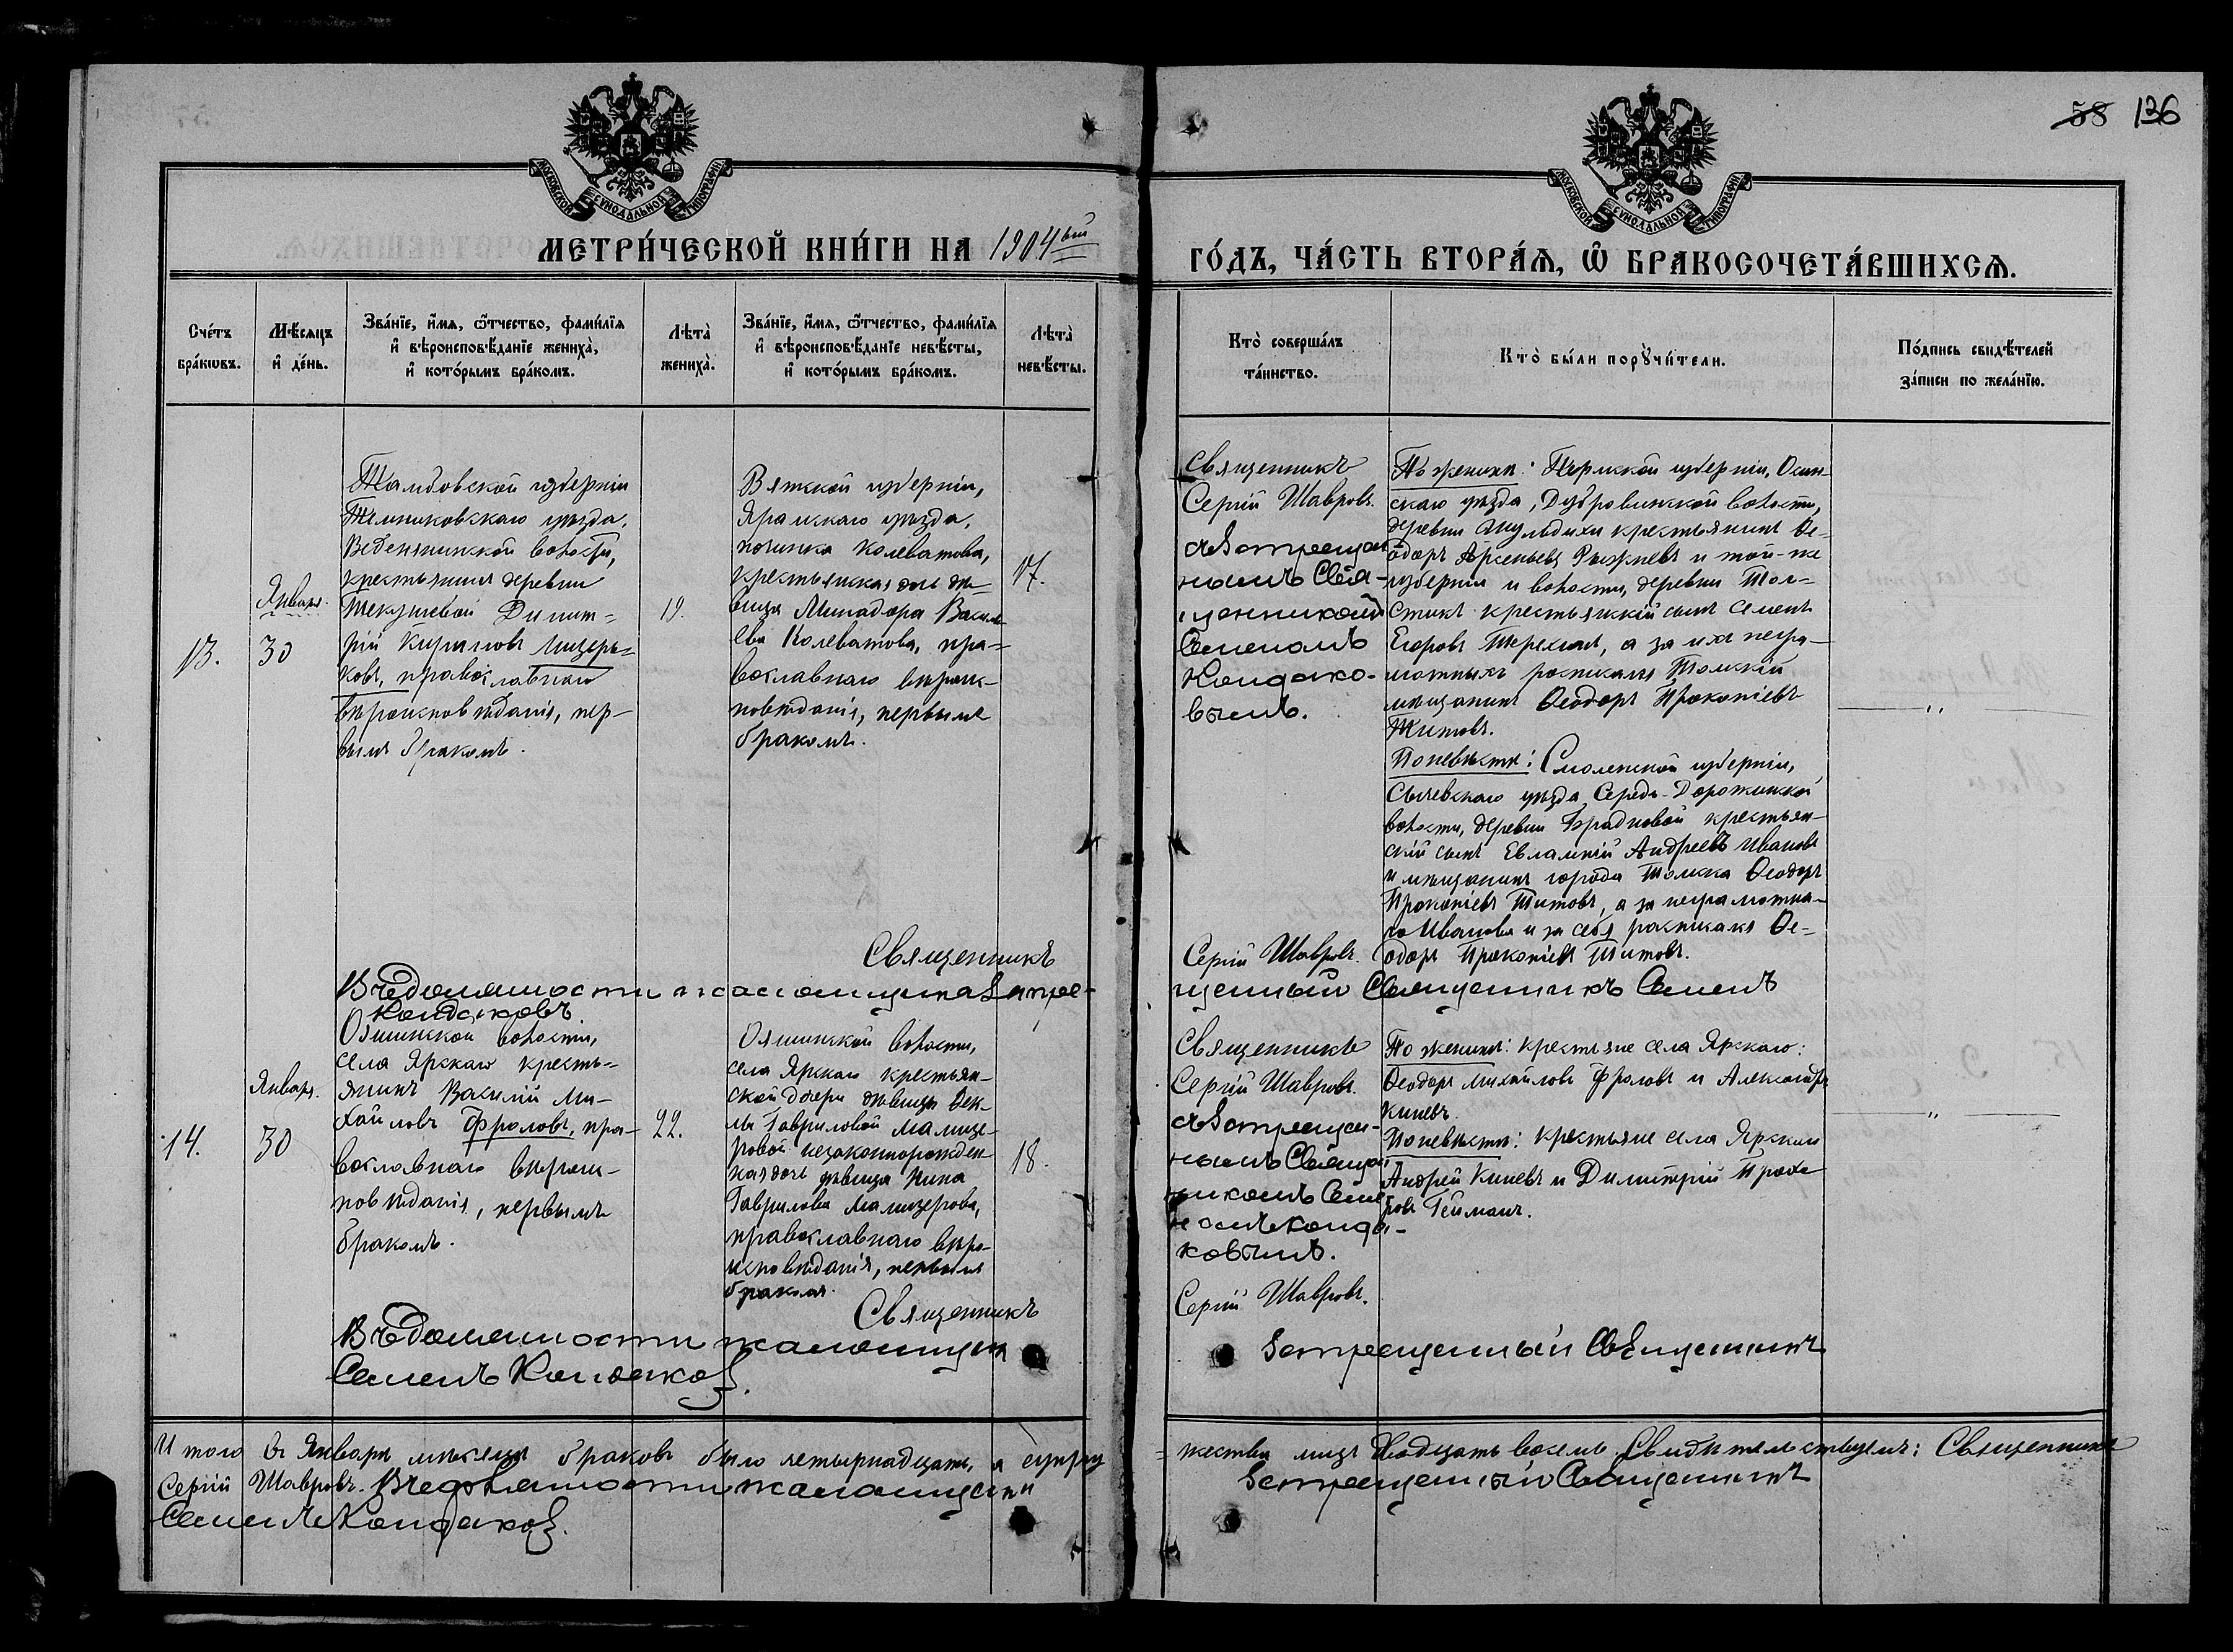 58 136
МОСКОВСКОЙ СУНОДАЛЬНОЙ ТИПОГРАФІИ
МОСКОВСКОЙ СУНОДАЛЬНОЙ ТИПОГРАФІИ
МЕТРИ́ЧЕСКОЙ КНИ́ГИ НА 1904ый
ГО́ДЪ, ЧА́СТЬ ВТОРА́Ѧ, Ѡ҆ БРАКОСОЧЕТА́ВШИХСѦ.
Сче́тъ
бра́кѡвъ.
Мѣ́сяцъ
и҆ де́нь.
Зва́нїе, и҆́мѧ, ѻ҆́тчество, фами́лїѧ
и҆ вѣроисповѣ́данїе жениха̀,
и҆ кото́рымъ бра́комъ.
Лѣта̀
жениха̀.
Зва́нїе, и҆́мѧ, ѻ҆́тчество, фами́лїѧ
и҆ вѣроисповѣ́данїе невѣ́сты,
и҆ кото́рымъ бра́комъ.
Лѣта̀
невѣ́сты.
Кто̀ соверша́лъ
та́инство.
Кто̀ бы́ли порꙋчи́тели.
По́дпись свидѣ́телей
за́писи по жела́нїю.
13.
Января.
30
Тамбовской губерніи
Темниковскаго уѣзда,
Веденяпинской волости,
крестьянинъ деревни
Димит=
рій
Мизерь=
ковъ, православнаго
вѣроисповѣданія, пер-
вымъ бракомъ.
19.
Вятской губерніи,
Яранскаго уѣзда,
починка Колеватова,
крестьянская дочь дѣ-
вица Минадора Василь-
ева Колеватова, пра-
вославнаго вѣроис-
повѣданія, первымъ
бракомъ.
17.
Священникъ
Сергій Шавровъ.
съ Запрещен-
нымъ Свя-
щенникомъ
Семеномъ
Кондако-
вымъ.
По женихѣ: Пермской губерніи, Осин-
скаго уѣзда, Дубровинской волости,
деревни крестьянинъ Ѳе-
одоръ Арсеньевъ и той-же
губерніи и волости, деревни Тол-
стикъ крестьянскій сынъ Семенъ
Егоровъ Терехинъ, а за ихъ негра-
мотныхъ росписался Томскій
мѣщанинъ Ѳеодоръ Прокопіевъ
Титовъ.
По невѣстѣ: Смоленской губерніи,
Сычевскаго уѣзда Середе-Дорожинской
волости, деревни крестьян-
скій сынъ Евлампій Андреевъ Ивановъ
и мѣщанинъ города Томска Ѳеодоръ
Прокопіевъ Титовъ, а за неграмотна-
го Иванова и за себя росписался Ѳе-
одоръ Прокопіевъ Титовъ.
Священникъ Сергій Шавровъ.
Въ должности псаломщика Запре-
щенный Священникъ Семенъ
Кондаковъ.
14.
Января.
30
Ояшинской волости,
села Ярскаго кресть-
янинъ Василій Ми-
хайловъ Фроловъ, пра-
вославнаго вѣроис-
повѣданія, первымъ
бракомъ.
22.
Ояшинской волости,
села Ярскаго крестьян-
ской дочери дѣвицы Ѳек-
лы Гавриловой Мамизе-
ровой незаконнорожден-
ная дочь дѣвица Нина
Гаврилова Мамизерова,
православнаго вѣро-
исповѣданія, первымъ
бракомъ.
18.
Священникъ
Сергій Шавровъ.
съ Запрещен-
нымъ Священ
никомъ Семе
номъ Конда-
ковымъ.
По женихѣ: крестьяне села Ярскаго:
Ѳеодоръ Михайловъ Фроловъ и Александръ
Киневъ.
По невѣстѣ: крестьяне села Ярскаго
Андрей Киневъ и Димитрій Прохо
ровъ Гейманъ.
Священникъ Сергій Шавровъ.
Въ должности псаломщика Запрещенный Священникъ
Семенъ Кондаковъ.
Итого въ Январѣ мѣсяцѣ браковъ было четырнадцать, а супру
жества лицъ двадцать восемь. Свидѣтельствуемъ: Священникъ
Сергій Шавровъ. Въ должности псаломщика Запрещенный Священникъ
Семенъ Кондаковъ.